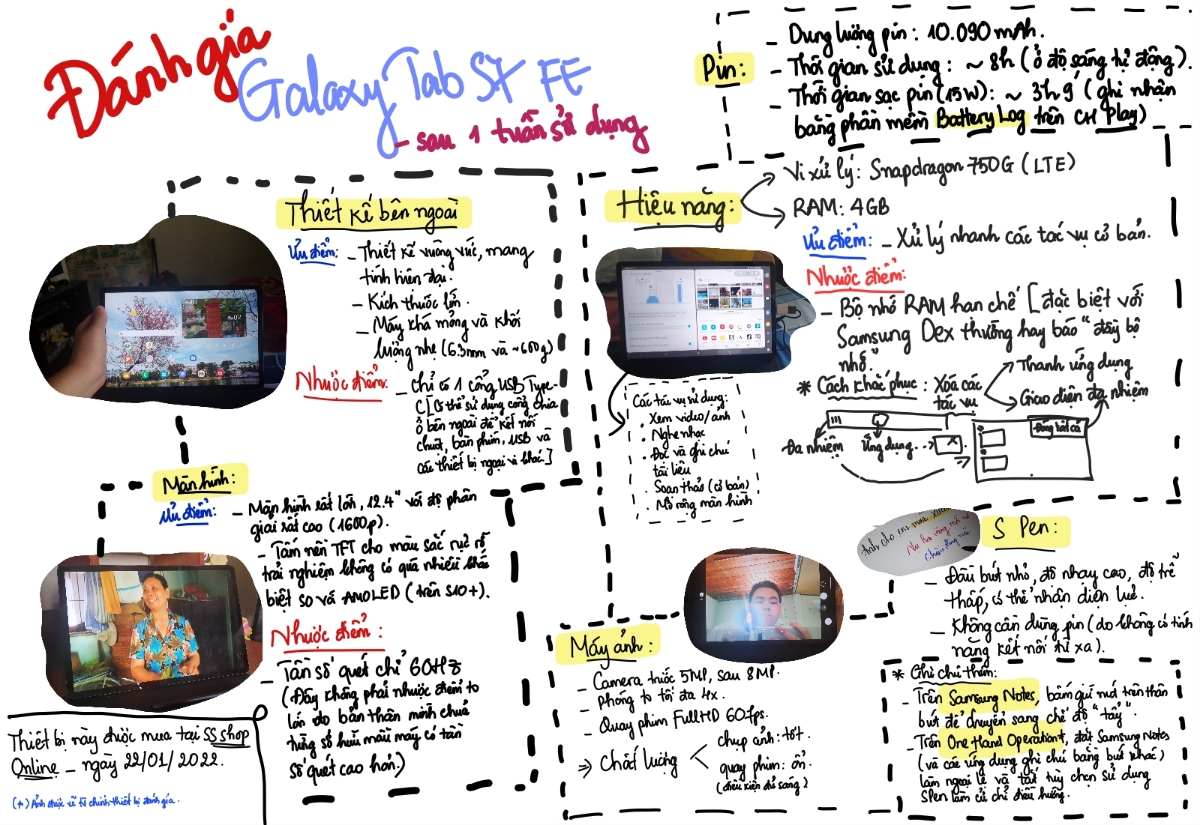 Đánh giá
Galaxy Tab S7 FE
- sau 1 tuần sử dụng
Pin:
- Dung lượng pin: 10.090 mAh.
- Thời gian sử dụng: ~ 8h (ở độ sáng tự động).
- Thời gian sạc pin (15W): ~ 3h9 (ghi nhận
bằng phần mềm Battery Log trên CH Play)
Thiết kế bên ngoài
Ưu điểm: - Thiết kế vuông vức, mang
tính hiện đại.
- Kích thước lớn.
- Máy khá mỏng và khối
lượng nhẹ (6.3mm và ~600g)
Nhược điểm: - Chỉ có 1 cổng USB Type-
C [Có thể sử dụng cổng chia
ở bên ngoài để kết nối
chuột, bàn phím, USB và
các thiết bị ngoại vi khác.]
Hiệu năng:
Vi xử lý: Snapdragon 750G (LTE)
RAM: 4GB
Ưu điểm: - Xử lý nhanh các tác vụ cơ bản.
Nhược điểm:
- Bộ nhớ RAM hạn chế [đặc biệt với
Samsung Dex thường hay báo "đầy bộ
nhớ"
* Cách khắc phục: Xóa các
tác vụ
Thanh ứng dụng
Giao diện đa nhiệm
Đa nhiệm
Ứng dụng
x
Đóng tất cả
Các tác vụ sử dụng:
. Xem video/ảnh
. Nghe nhạc
. Đọc và ghi chú
tài liệu
. Soạn thảo (cơ bản)
. Mở rộng màn hình
Màn hình:
Ưu điểm: - Màn hình rất lớn, 12.4" với độ phân
giải rất cao (1600p).
- Tấm nền TFT cho màu sắc rực rỡ
trải nghiệm không có quá nhiều khác
biệt so với AMOLED (trên S10+).
Nhược điểm:
- Tần số quét chỉ 60Hz
(Đây không phải nhược điểm to
lớn do bản thân mình chưa
từng sở hữu mẫu máy có tần
số quét cao hơn.)
Thiết bị này được mua tại SS shop
Online - ngày 22/01/2022.
(*) Ảnh được vẽ từ chính thiết bị đánh giá.
Máy ảnh:
- Camera trước 5MP, sau 8MP.
- Phóng to tối đa 4x.
- Quay phim FullHD 60fps.
=> Chất lượng
chụp ảnh: tốt.
quay phim: ổn.
(điều kiện đủ sáng)
S Pen:
- Đầu bút nhỏ, độ nhạy cao, độ trễ
thấp, có thể nhận diện lực.
- Không cần dùng pin (do không có tính
năng kết nối từ xa).
* Ghi chú thêm:
- Trên Samsung Notes, bấm giữ nút trên thân
bút để chuyển sang chế độ "tẩy".
- Trên One Hand Operation+, đặt Samsung Notes
(và các ứng dụng ghi chú bằng bút khác)
làm ngoại lệ và tắt tùy chọn sử dụng
SPen làm cử chỉ điều hướng.